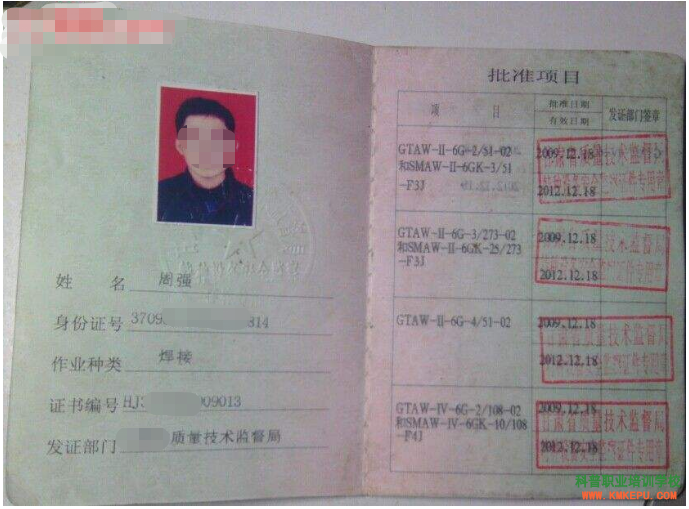 姓 名 周强
身份证号 3709 314
作业种类 焊接
证书编号 HJ3 009013
发证部门 质量技术监督局
批准项目
项 目
批准日期
有效日期
发证部门签章
GTAW-II-6G-2/51-02
和SMAW-II-6GK-3/51
-F3J
2009.12.18
2012.12.18
GTAW-II-6G-3/273-02
和SMAW-II-6GK-25/273
-F3J
2009.12.18
2012.12.18
GTAW-II-6G-4/51-02
2009.12.18
2012.12.18
GTAW-IV-6G-2/108-02
和SMAW-IV-6GK-10/108
-F4J
2009.12.18
2012.12.18
甘肃省质量技术监督局
科普职业培训学校
WWW.KMKEPU.COM